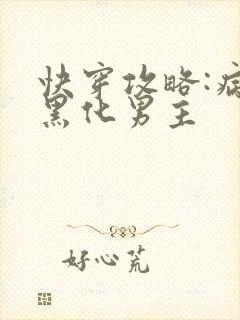 快穿攻略:病
黑化男主
好心荒